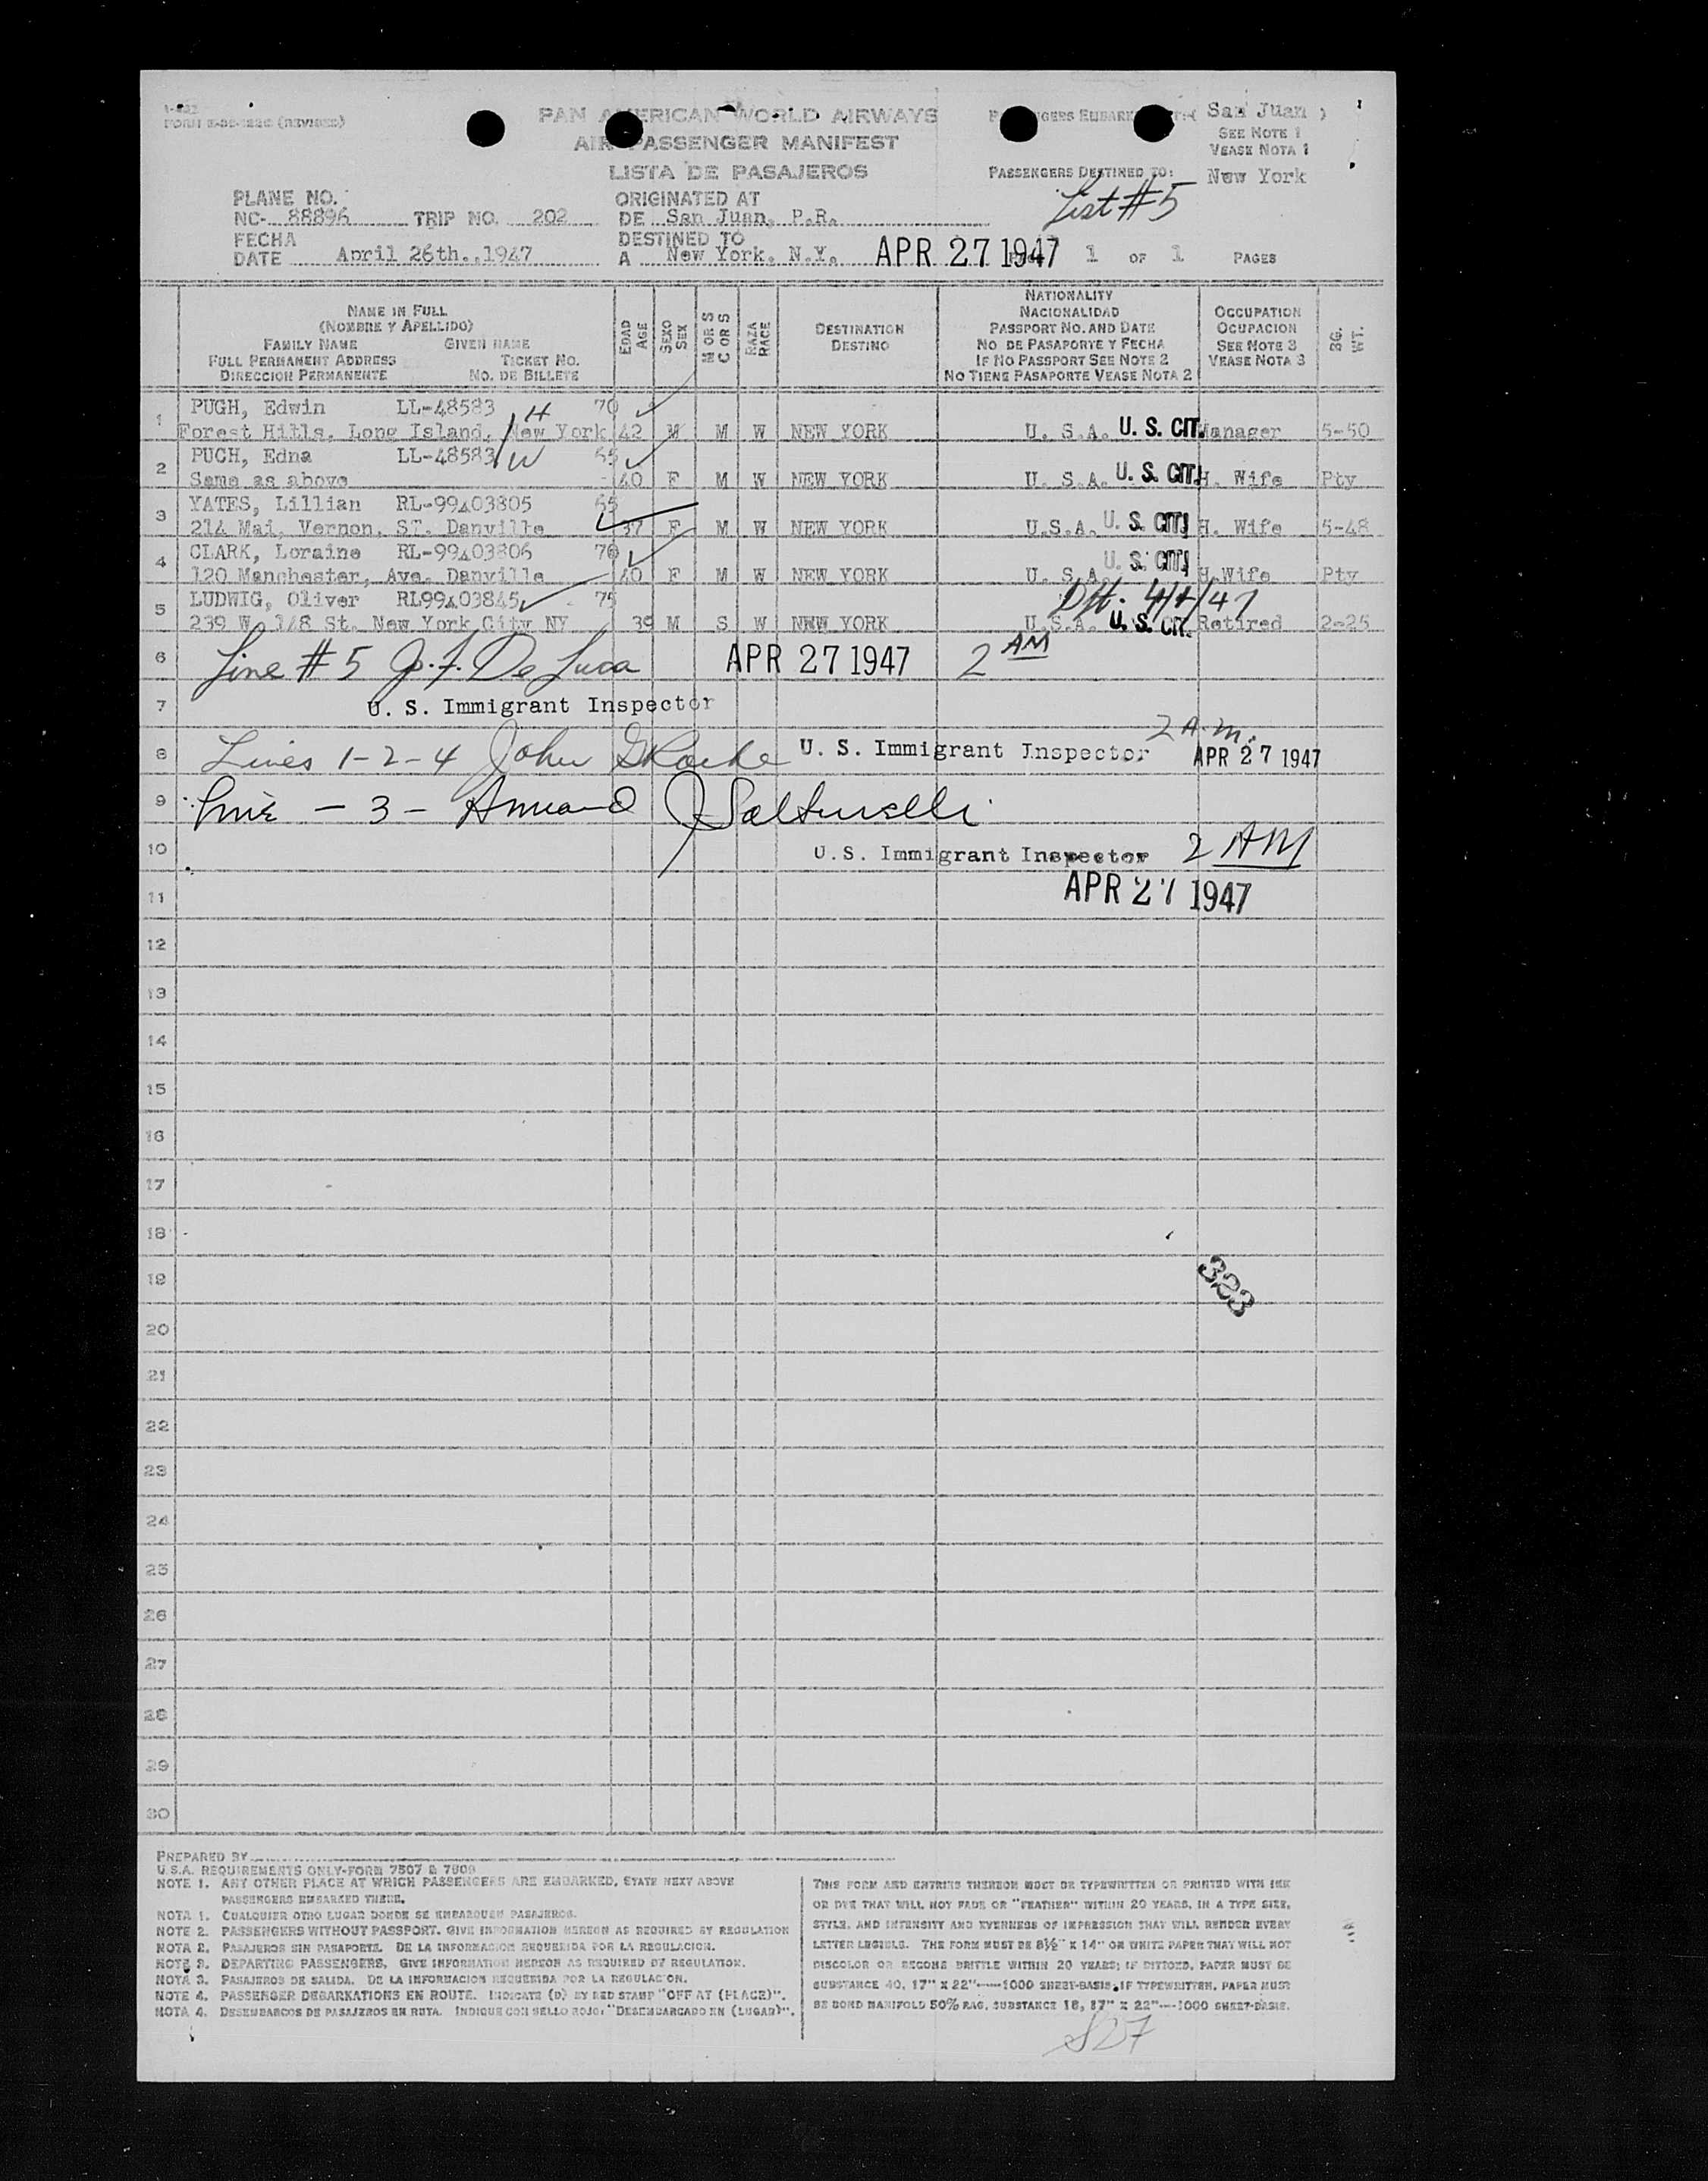 FORM (REVISED)
PAN AMERICAN WORLD AIRWAYS
AIR PASSENGER MANIFEST
LISTA DE PASAJEROS
San Juan )
SEE NOTE 1
VEASE NOTA 1
PASSENGERS DESTINED TO: New York
List #5
PLANE NO.
NC- 88896 TRIP NO. 202
ORIGINATED AT
DE San Juan, P.R.
FECHA
DATE April 26th.,1947
DESTINED TO
A New York, N.Y.
APR 27 1947
1 OF 1 PAGES
NAME IN FULL
(NOMBRE Y APELLIDO)
FAMILY NAME GIVEN NAME
FULL PERMANENT ADDRESS TICKET NO.
DIRECCION PERMANENTE NO. DE BILLETE
EDAD AGE
SEXO SEX
M OR S C OR S
RAZA RACE
DESTINATION
DESTINO
NATIONALITY
NACIONALIDAD
PASSPORT NO. AND DATE
NO DE PASAPORTE Y FECHA
IF NO PASSPORT SEE NOTE 2
NO TIENE PASAPORTE VEASE NOTA 2
OCCUPATION
OCUPACION
SEE NOTE 3
VEASE NOTA 3
BG. WT.
1 PUGH, Edwin LL-48583 H 70
Forest Hills, Long Island, New York 42 M M W NEW YORK U. S.A. U. S. CIT. Manager 5-50
2 PUGH, Edna LL-48583 W 65
Same as above 40 F M W NEW YORK U. S.A. U. S. CIT. H. Wife Pty
3 YATES, Lillian RL-99403805 65
214 Mai, Vernon, ST. Danville 37 F M W NEW YORK U.S.A. U. S. CIT. H. Wife 5-48
4 CLARK, Loraine RL-99403806 70
120 Manchester, Ave. Danville 40 F M W NEW YORK U. S.A. U. S. CIT. H.Wife Pty
5 LUDWIG, Oliver RL99403845 75
239 W. 148 St. New York City NY 39 M S W NEW YORK U.S.A. U. S. CIT. Retired 2-25
6 Line # 5 J. F. De Luca APR 27 1947 2 AM
7 U. S. Immigrant Inspector
2 A.M.
8 Lines 1-2-4 John U. S. Immigrant Inspector APR 27 1947
9 Line - 3 - Armand J
10 U.S. Immigrant Inspector 2 AM
11 APR 27 1947
12
13
14
15
16
17
18
19 323
20
21
22
23
24
25
26
27
28
29
30
PREPARED BY
U.S.A. REQUIREMENTS ONLY-FORM 7507 & 7509
NOTE 1. ANY OTHER PLACE AT WHICH PASSENGERS ARE EMBARKED, STATE NEXT ABOVE
PASSENGERS EMBARKED THERE.
NOTA 1. CUALQUIER OTRO LUGAR DONDE SE EMBARQUEN PASAJEROS.
NOTE 2. PASSENGERS WITHOUT PASSPORT. GIVE INFORMATION HEREON AS REQUIRED BY REGULATION
NOTA 2. PASAJEROS SIN PASAPORTE. DE LA INFORMACION REQUERIDA POR LA REGULACION.
NOTE 3. DEPARTING PASSENGERS, GIVE INFORMATION HEREON AS REQUIRED BY REGULATION.
NOTA 3. PASAJEROS DE SALIDA. DE LA INFORMACION REQUERIDA POR LA REGULACION.
NOTE 4. PASSENGER DEBARKATIONS EN ROUTE. INDICATE (D) BY RED STAMP "OFF AT (PLACE)".
NOTA 4. DESEMBARCOS DE PASAJEROS EN RUTA. INDIQUE CON SELLO ROJO: "DESEMBARCADO EN (LUGAR)".
THIS FORM AND ENTRIES THEREON MUST BE TYPEWRITTEN OR PRINTED WITH INK
OR DYE THAT WILL NOT FADE OR "FEATHER" WITHIN 20 YEARS, IN A TYPE SIZE,
STYLE, AND INTENSITY AND EVENNESS OF IMPRESSION THAT WILL RENDER EVERY
LETTER LEGIBLE. THE FORM MUST BE 8½" X 14" ON WHITE PAPER THAT WILL NOT
DISCOLOR OR BECOME BRITTLE WITHIN 20 YEARS; IF DITTOED, PAPER MUST BE
SUBSTANCE 40, 17" X 22"----1000 SHEET-BASIS. IF TYPEWRITTEN, PAPER MUST
BE BOND MANIFOLD 50% RAG, SUBSTANCE 18, 17" X 22"---1000 SHEET-BASIS.